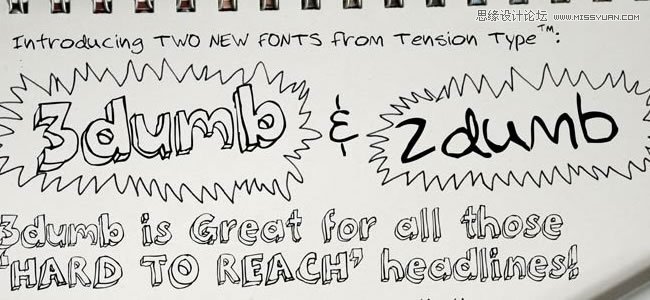 思缘设计论坛 WWW.MISSYUAN.COM
Introducing TWO NEW FONTS from Tension Type™:
3dumb & 2dumb
3dumb is Great for all those
"HARD TO REACH" headlines!